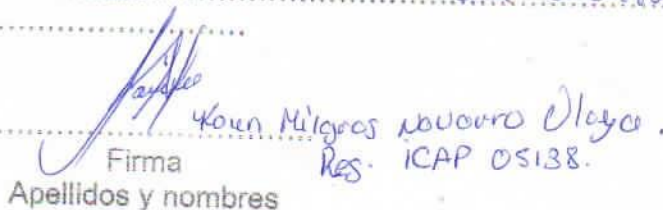 Karen Milagros Navarro Olaya.
Firma
Reg. ICAP 05138.
Apellidos y nombres